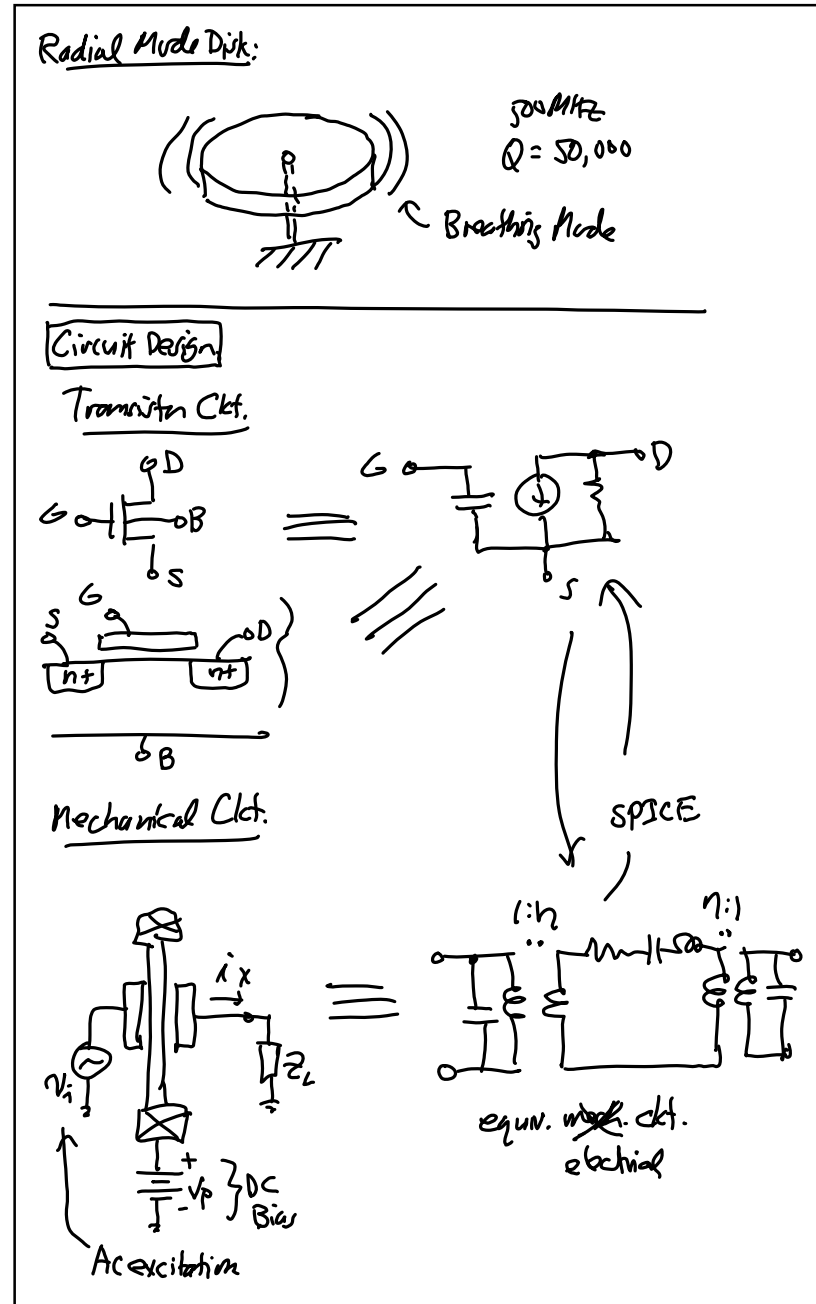 Radial Mode Disk:
500MHz
Q = 50,000
Breathing Mode
Circuit Design
Transistor Ckt.
D
G
B
S
G
D
S
S
G
D
n+
n+
B
Mechanical Ckt.
SPICE
1:η
η:1
ix
vi
ZL
+
- VP } DC
Bias
equiv. mech. ckt.
electrical
AC excitation